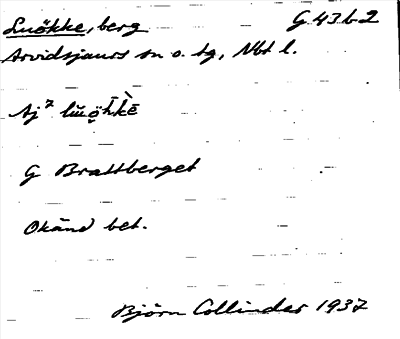 Luökke, berg G 43 b 2
Arvidsjaurs sn o. tg, Nbt l.
Aj⁷
G Brattberget
Okänd bet.
Björn Collinder 1937